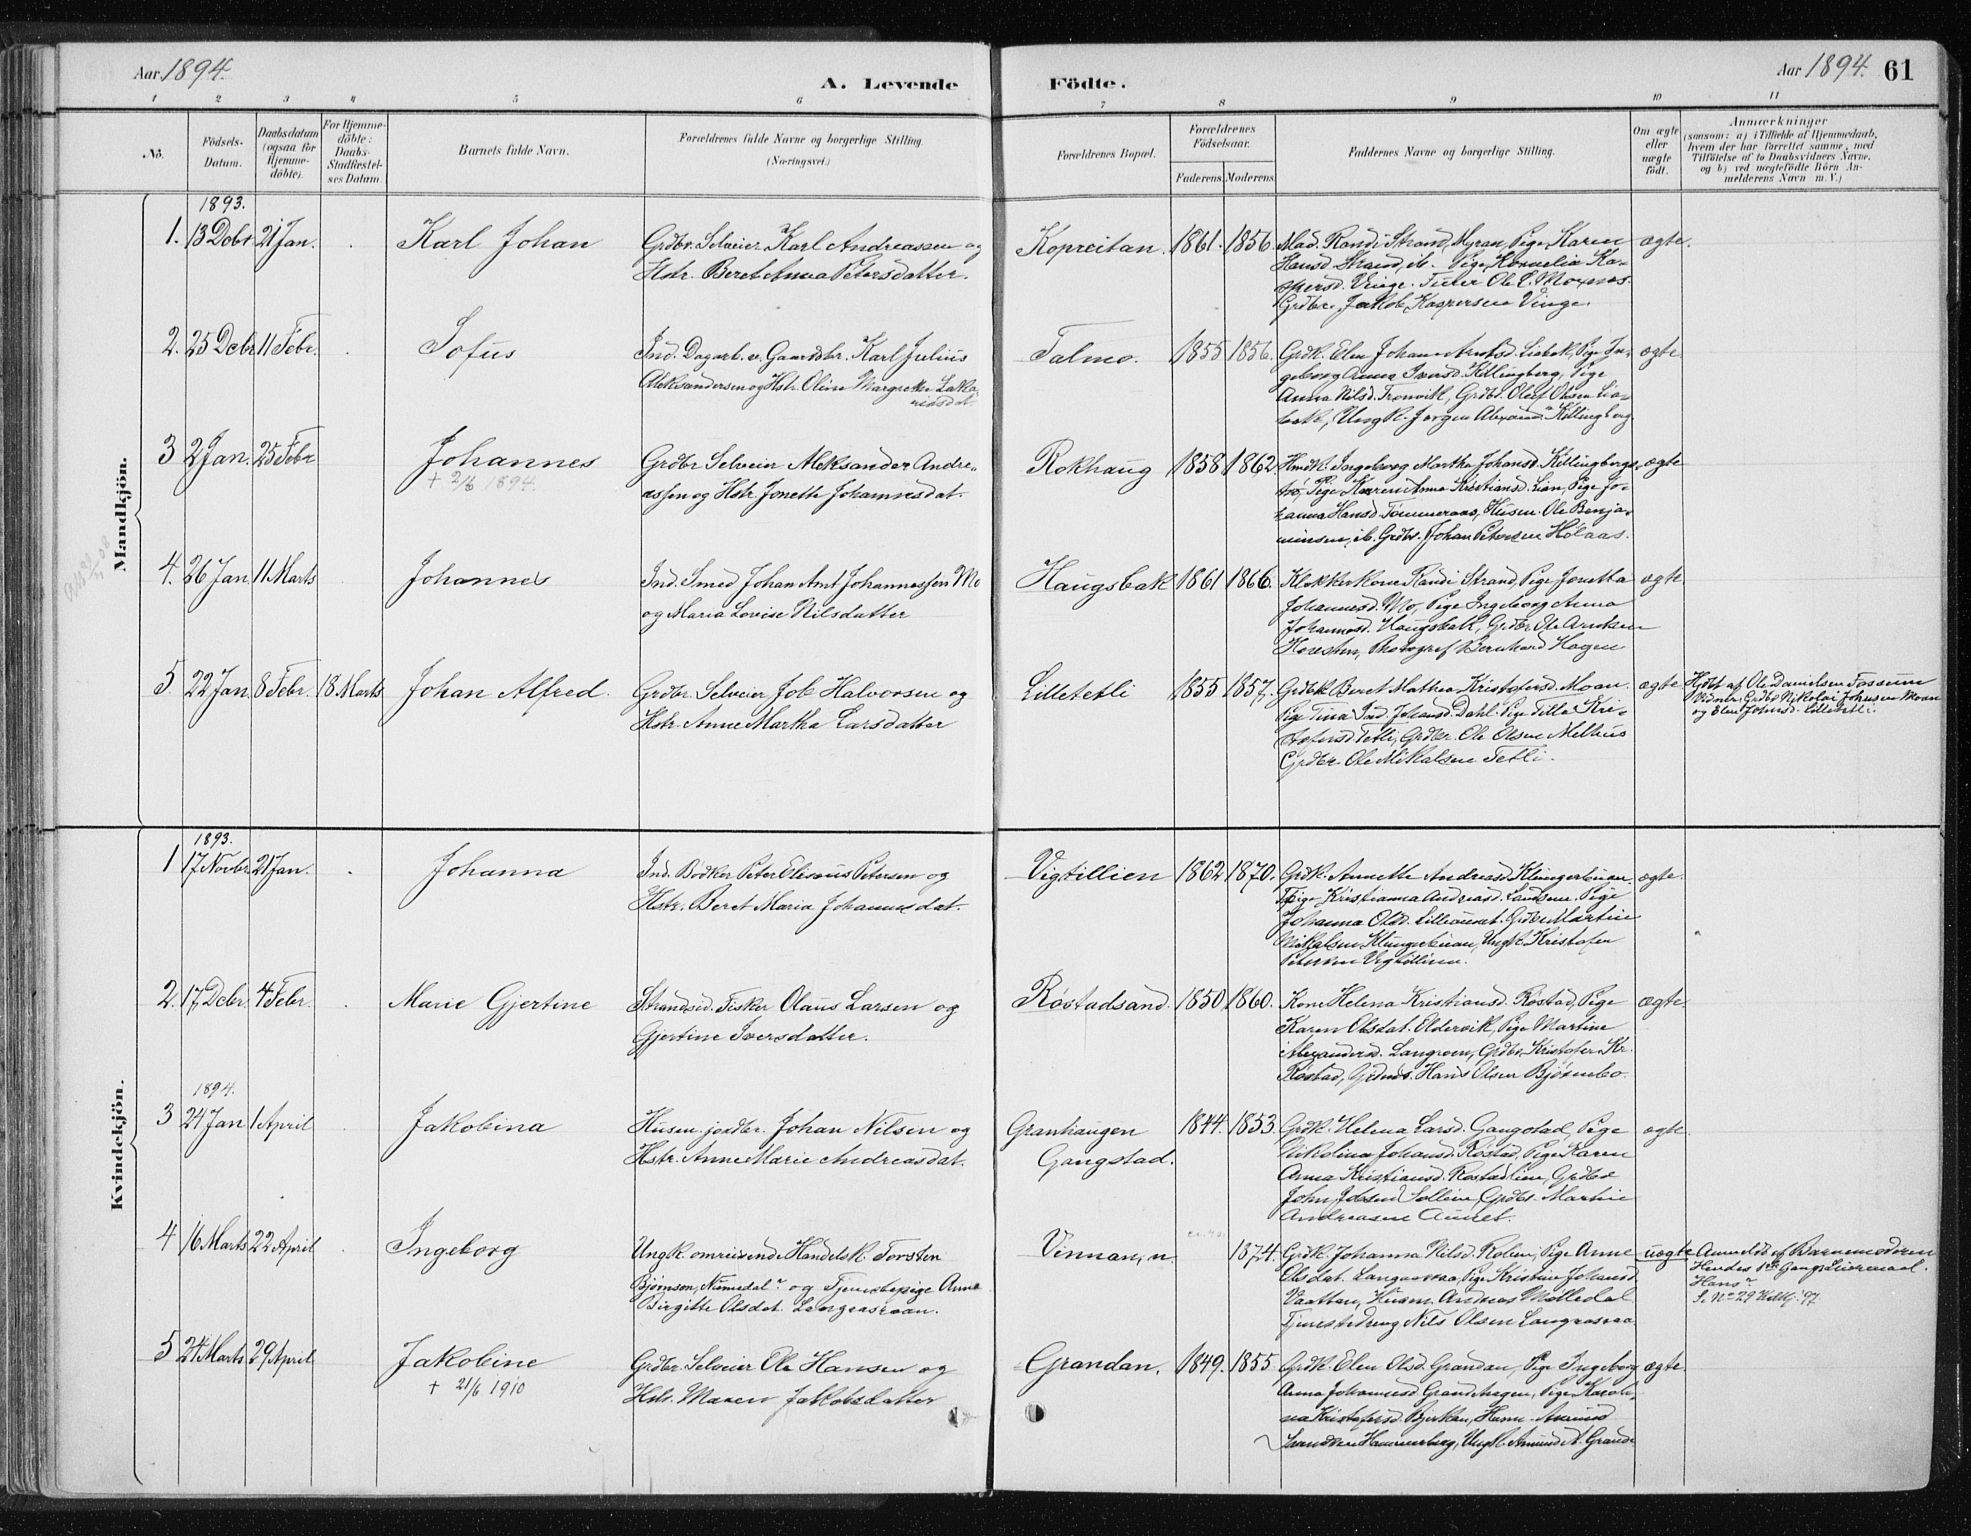 Aar 1894.
A. Levende
Födte.
Aar 1894.
61
1 2 3 4 5 6 7 8 9 10 11
No.
Födsels-
Datum.
Daabsdatum
(ogsaa for
Hjemme-
döbte).
For Hjemme-
döbte:
Daabs-
Stadfæstel-
ses Datum.
Barnets fulde Navn.
Forældrenes fulde Navne og borgerlige Stilling.
(Næringsvei.)
Forældrenes Bopæl.
Forældrenes
Födselsaar.
Faderens. Moderens.
Faddernes Navne og borgerlige Stilling.
Om ægte
eller
uægte
födt.
Anmærkninger
(saasom: a) i Tilfælde af Hjemmedaab,
hvem der har forrettet samme, med
Tilföielse af to Daabsvidners Navne,
og b) ved uægtefödte Börn An-
melderens Navn m. V.)
Mandkjön.
1893.
1. 13 Debr. 21 Jan.
Karl Johan
Grdbr. Selveier Karl Andreassen og
Hstr. Beret Anna Petersdatter.
Kopreitan. 1861. 1856.
Mad. Randi Strand, Myran, Pige Karen
Hansd. Strand, ib. Pige Kornelia Ka-
spersd. Vinge. Tuber Ole L. Moxnes.
Grdbr. Jakob Kaspersen Vinge.
ægte.
2. 25 Debr. 11 Febr.
Sofus
Ind. Dagarb. v. Gaardsbr. Karl Julius
Aleksandersen og Hstr. Oline Margrethe Zaka-
riasdt.
Talmo. 1855 1856.
Grdk. Elen Johanna Arntsd. Liabak, Pige In-
geborg Anna Iversd. Killingberg, Pige
Anna Nilsd. Tronvik, Grdbr. Oluf Olsen Lia-
bak, Ungk. Jørgen Alexand. Killingberg
ægte
3 2 Jan. 25 Febr
Johannes
+ 2/6 1894.
Grdbr Selveier Aleksander Andre-
assen og Hstr. Jonette Johannesdat.
Rokhaug 1858 1862
Hmdk. Ingeborg Martha Johansd. Killingbergs-
trø, Pige Karen Anna Kristiansd. Lian, Pige Jo-
hanna Hansd. Tømmeraas, Husm. Ole Benja-
minsen, ib. Grdbr. Johan Petersen Holaas.
ægte
4. 26 Jan. 11 Marts
Johannes
Ind. Smed Johan Arnt Johannessen Mo
og Maria Lovise Nilsdatter
Haugsbak 1861 1866.
Klokkerkone Randi Strand, Pige Jonetta
Johannesd. Mo, Pige Ingeborg Anna
Johannesd. Haugsbak, Grdbr. Ole Arntsen
Horesten, Photograf Bernhard Hagen
ægte
5 22 Jan. 8 Febr. 18 Marts
Johan Alfred.
Grdbr. Selveier Job Halvorsen og
Hstr. Anne Martha Larsdatter
Lilletetli 1855 1857.
Grdbk. Beret Mathea Kristofersd. Moan.
Pige Tina Ind. Johansd. Dahl. Pige Tilla Kri-
stofersd. Tetli, Grdbr. Ole Olsen Melhus
Grdbr. Ole Mikalsen Tetli.
ægte
Hjdbt af Ole Danielsen Fossum
Vidner: Grdbr Nikolai Johnsen Moan
og Elen Johnsd. Lilletetli.
Kvindekjön.
1893.
1 17 Novbr. 21 Jan.
Johanna
Ind. Bødker Peter Eliseus Petersen og
Hstr. Beret Maria Johannesdat.
Vigtillien 1862 1870.
Grdk. Annette Andreasd. Klungerbuan.
Tpige Kristianna Andreasd. Landsem. Pige
Johanna Olsd. Lilleaunet. Grdbr Martin
Mikalsen Klungerbuan, Ungk. Kristofer
Petersen Vigtillien.
ægte.
2. 17 Debr. 4 Febr.
Marie Gjertine
Strandsid. Fisker Olaus Larsen og
Gjertine Iversdatter.
Røstadsand. 1850 1860.
Kone Helena Kristiansd. Røstad, Pige
Karen Olsdat. Oldervik, Pige Martine
Alexandersd. Langroen, Grdbr. Kristofer Kr.
Røstad, Grdmds. Hans Olsen Bjørnebo.
ægte.
1894.
3 24 Jan 1 April
Jakobina
Husm. jordbr. Johan Nilsen og
Hstr. Anne Marie Andreasdat.
Granhaugen
Gangstad.
1844. 1853.
Grdk. Helena Larsd. Gangstad, Pige
Nikolina Johansd. Røstad, Pige Karen
Anna Kristiansd. Røstadlien, Grdbr
John Jobsen Sollien, Grdbr. Martin
Andreasen Aunet.
ægte
4 16 Marts 22 April
Ingeborg
Ungk. omreisende Handelsk. Torsten
Bjørnson, Numedal og Tjenestepige Anne
Birgitte Olsdat. Langaasvaan.
Vinnan, n 1874.
Grdk. Johanna Nilsd. Rolien, Pige Anne
Olsdat. Langaasvaa, Pige Kristine Johansd.
Vaattan, Husm. Andreas Mølledal
Tjenestedreng Nils Olsen Langaasvaa
uægte
Anmeldt af Barnemoderen
Hendes 1ste Gangs Leiermaal.
Hans
S. No 29 97.
5 24 Marts 29 April
Jakobine
+ 21/6 1910
Grdbr. Selveier Ole Hansen og
Hstr. Maren Jakobsdatter
Grandan. 1849. 1855.
Grdk. Elen Olsd. Grandan, Pige Ingeborg
Anna Johannesd. Grandhagen, Pige Karoli-
na Kristofersd. Bjerkan, Husm. Amund
Svendsen Hammerberg, Ungk. Amund A. Grande
ægte.